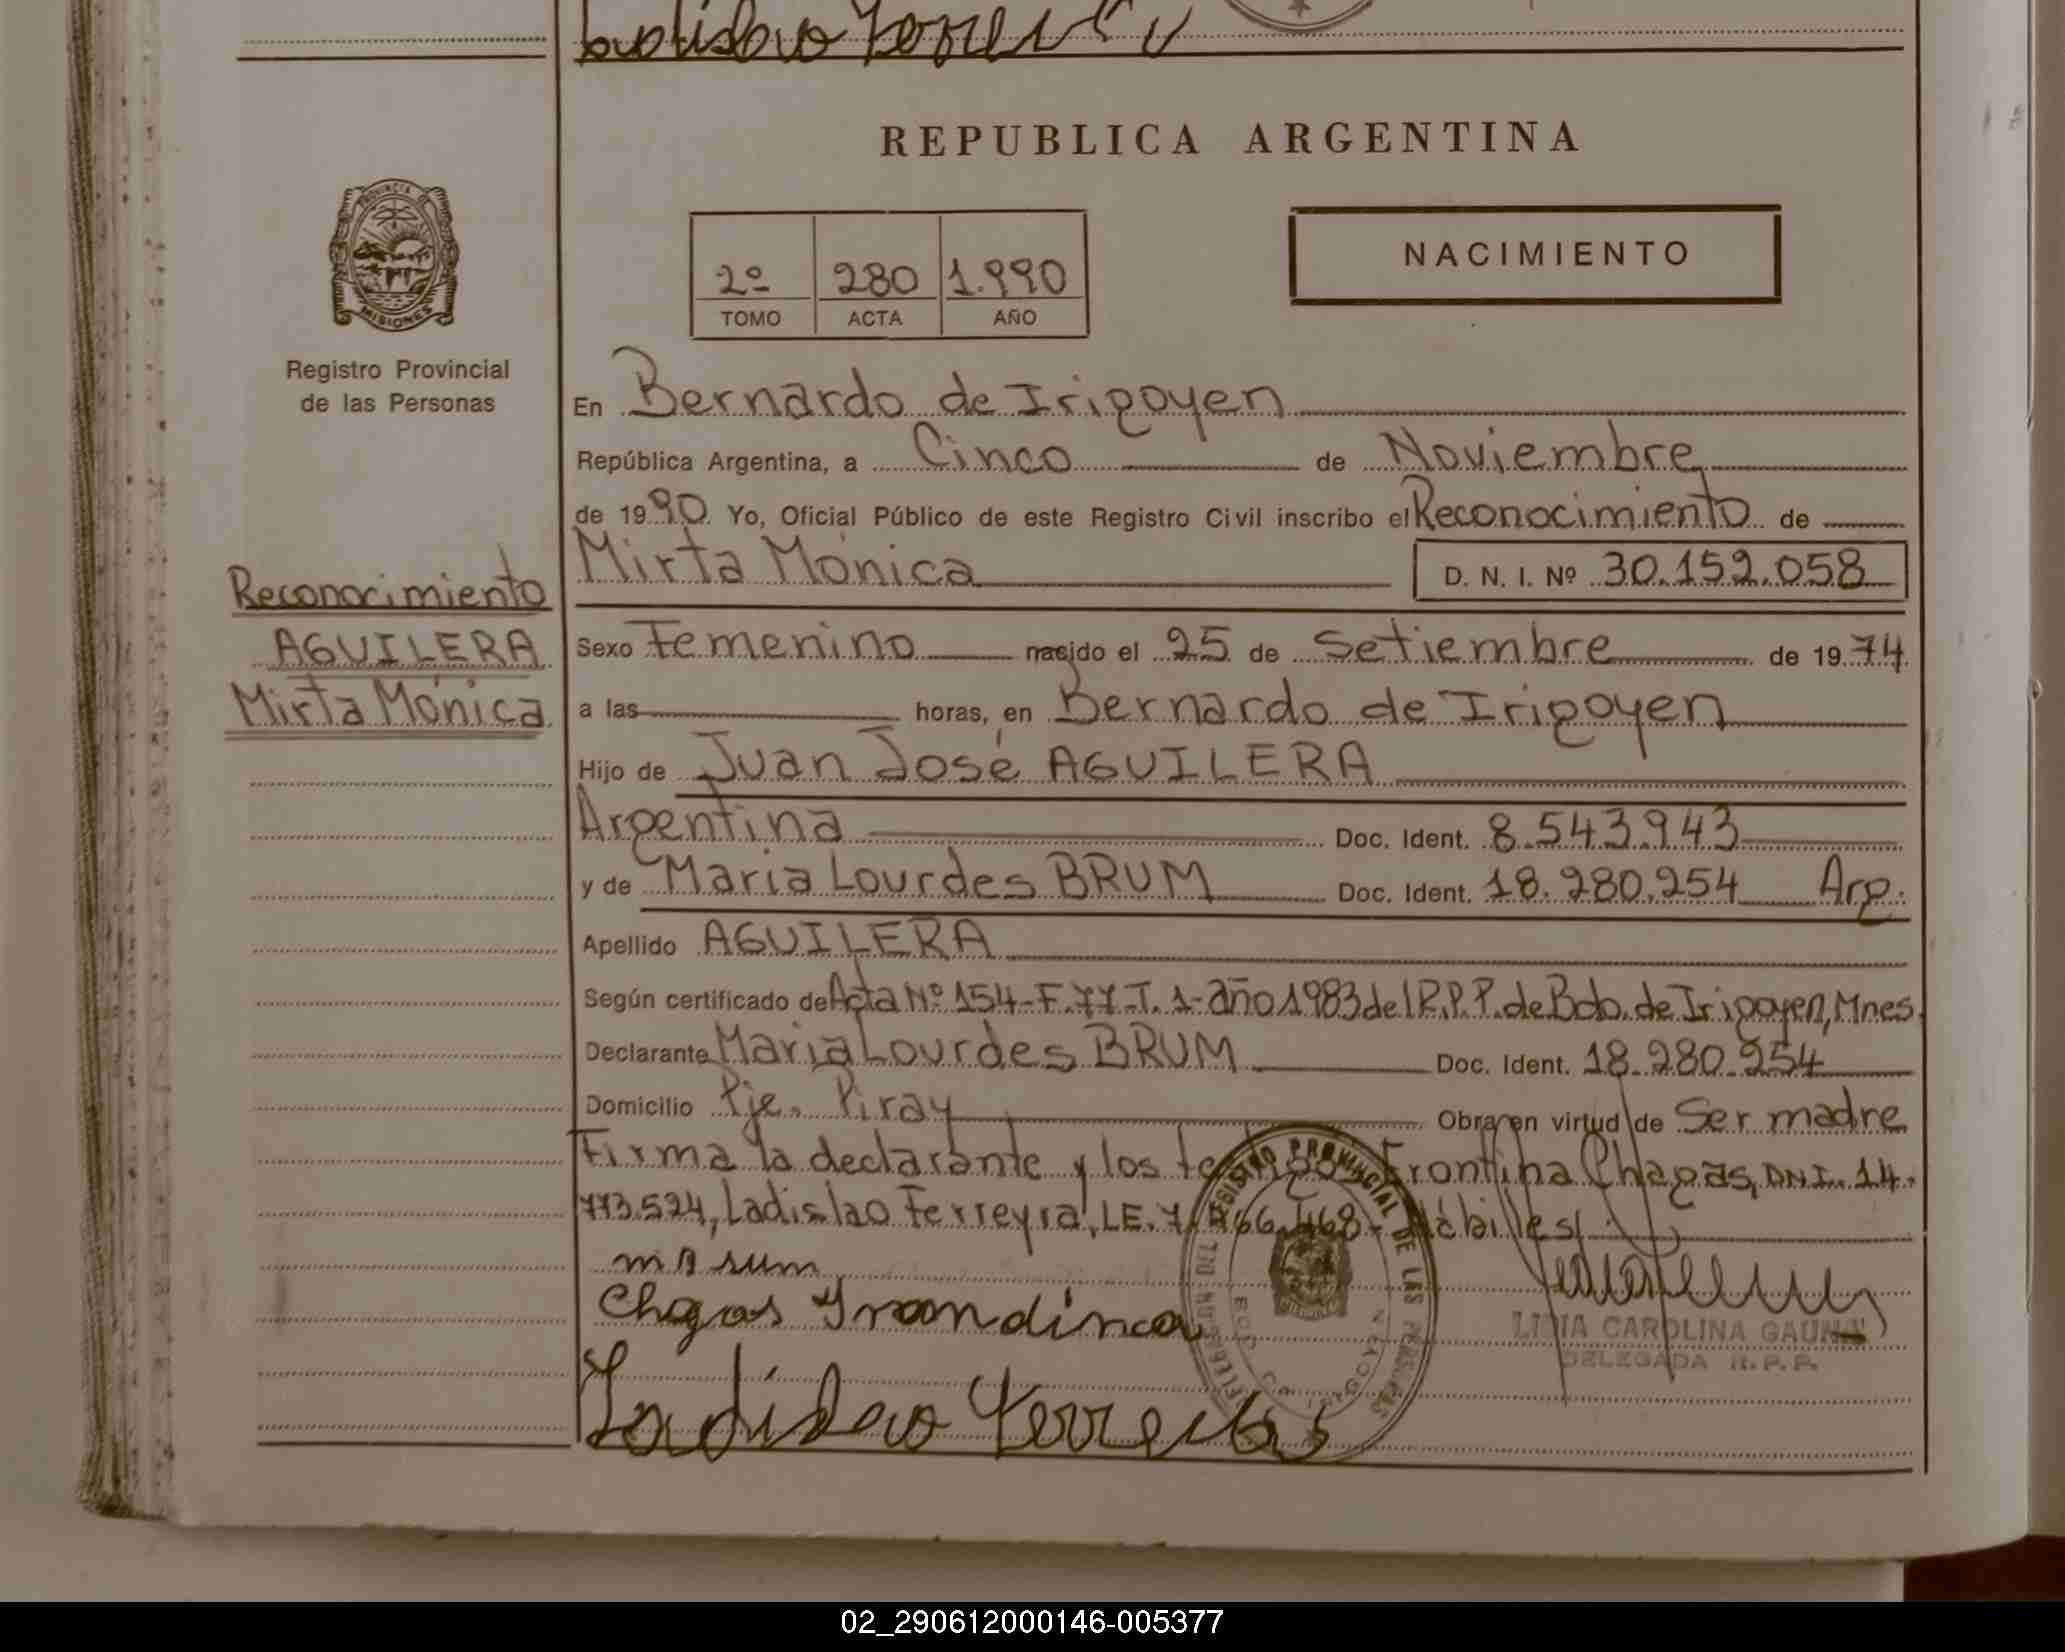 REPUBLICA ARGENTINA
PROVINCIA DE
MISIONES
Registro Provincial
de las Personas
2º 280 1.990
TOMO ACTA AÑO
NACIMIENTO
En Bernardo de Irigoyen
República Argentina, a Cinco de Noviembre
de 1990. Yo, Oficial Público de este Registro Civil inscribo el Reconocimiento de
Mirta Mónica D. N. I. Nº 30.152.058
Reconocimiento
AGUILERA
Mirta Mónica
Sexo Femenino nacido el 25 de Setiembre de 1974
a las horas, en Bernardo de Irigoyen
Hijo de Juan José AGUILERA
Argentina Doc. Ident. 8.543.943
y de Maria Lourdes BRUM Doc. Ident. 18.280.254 Arg.
Apellido AGUILERA
Según certificado de Acta Nº 154-F.77-T.1-año 1983 del R.P.P. de Bdo. de Irigoyen, Mnes.
Declarante Maria Lourdes BRUM Doc. Ident. 18.280.254
Domicilio Pje. Piray Obra en virtud de Ser madre
Firma la declarante y los testigos Frontina Chagas, DNI. 14.
773.524, Ladislao Ferreyra, LE. 7.466.468- Hábiles
m Brum
Chagas Frondina
REGISTRO PROVINCIAL DE LAS PERSONAS
LIDIA CAROLINA GAUNA
DELEGADA R.P.P.
02_290612000146-005377